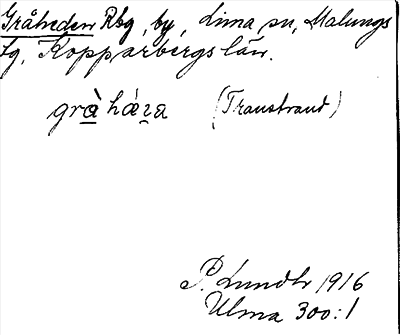 Gråheden Rbg, by, Lima sn, Malungs
tg, Kopparbergs län.
grà̱ háɿ̱a (Transtrand)
P. Lundbr 1916
Ulma 300:1